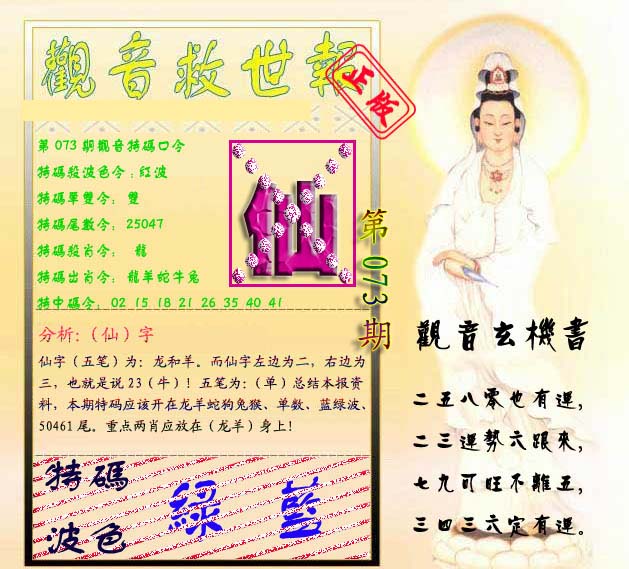 觀音救世報
正版
第073期觀音特碼口令
特碼殺波色令：紅波
特碼單雙令：雙
特碼尾數令：25047
特碼殺肖令：龍
特碼出肖令：龍羊蛇牛兔
特中碼令：02 15 18 21 26 35 40 41
仙
第073期
分析:（仙）字
仙字（五笔）为：龙和羊。而仙字左边为二，右边为
三，也就是说23（牛）！五笔为：（单）总结本报资
料，本期特码应该开在龙羊蛇狗兔猴、单数、蓝绿波、
50461尾。重点两肖应放在（龙羊）身上！
特碼
波色
綠 藍
觀音玄機書
二五八零也有運，
二三運勢六跟來，
七九可旺不離五，
三四三六定有運。